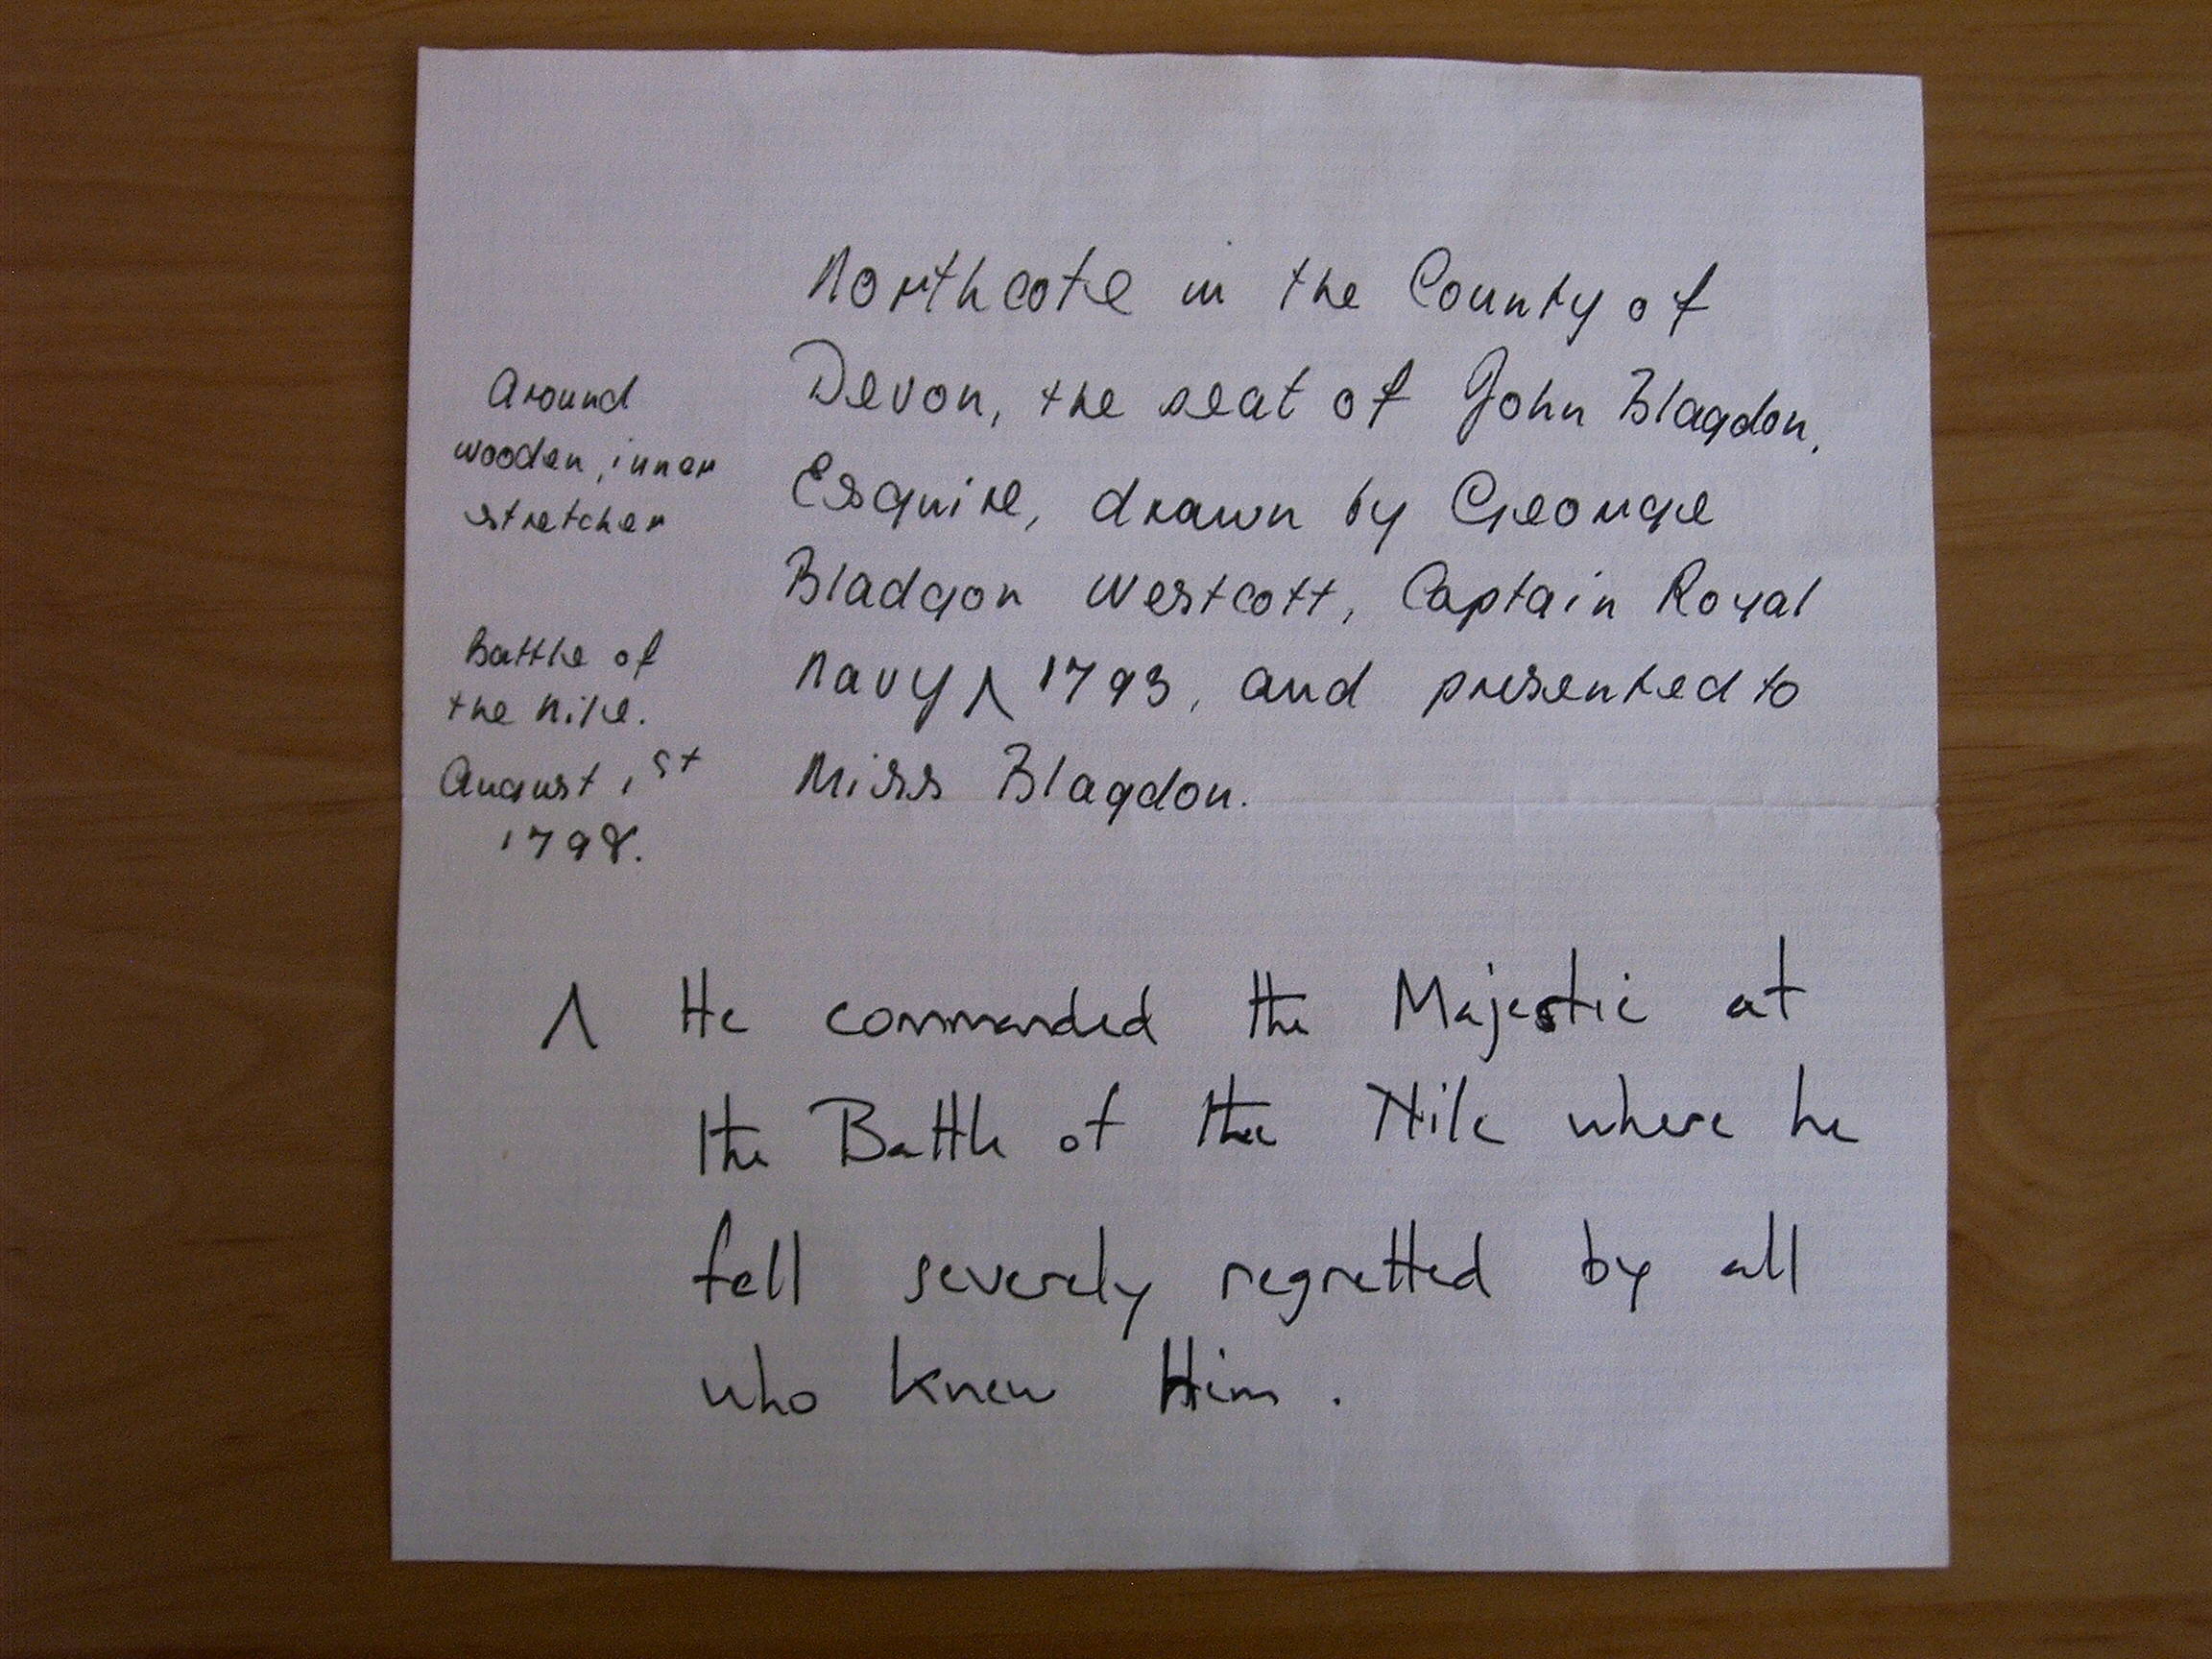 Northcote in the County of
Devon, the seat of John Blagdon,
Esquire, drawn by George
Bladgon Westcott, Captain Royal
Navy ⋀ 1793, and presented to
Miss Blagdon.
Around
wooden, inner
stretcher
Battle of
the Nile.
August 1st
1798.
⋀ He commanded the Majestic at
the Battle of the Nile where he
fell severely regretted by all
who knew Him.